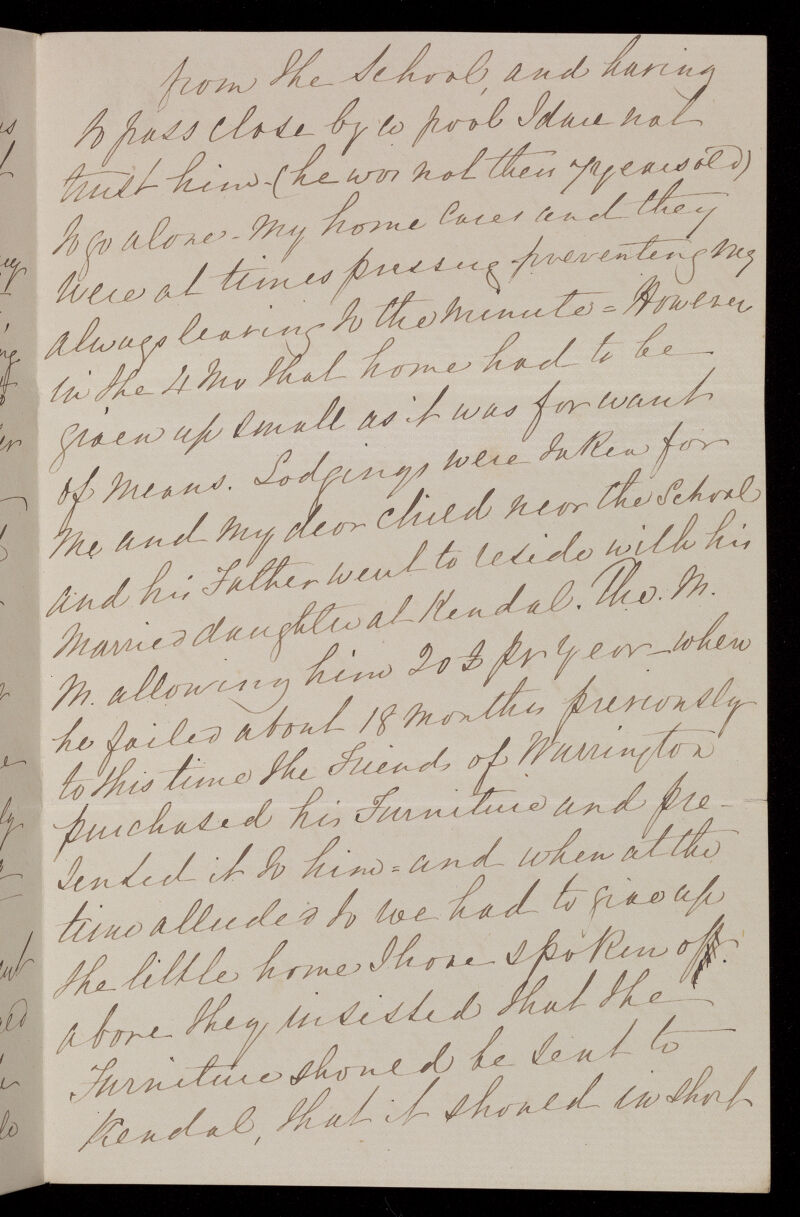 from the School, and having
to pass close by a pool I dare not
trust him - (he was not then 7 years old)
to go alone - My home cares and they
were at times pressing preventing my
always leaving to the minute = However
in the 4 Mo that home had to be
given up small as it was for want
of means. Lodgings were taken for
me and my dear child near the School
and his Father went to reside with his
Married daughter at Kendal. The. M.
M. allowing him 20£ pr year - when
he failed about 18 months previously
to this time the Friends of Warrington
purchased his Furniture and pre-
sented it to him = and when at the
time alluded to we had to give up
the little home I have spoken of
above they insisted that the
Furniture should be sent to
Kendal, that it should in short